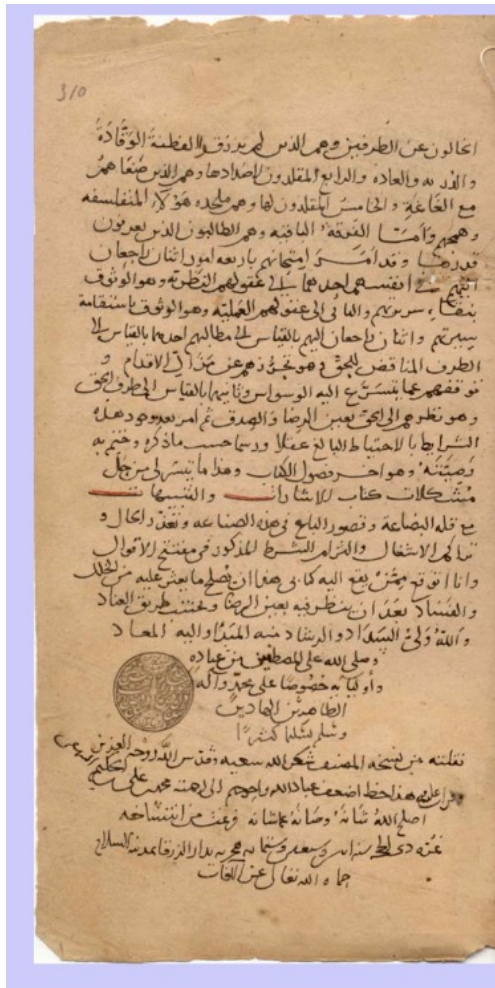 310
الخالون عن الطرفين وهم الذين لم يرزقوا الفطنة الوقادة
والدربه والعاده والرابع المقلدون لاضدادها وهم الذين صغاهم
مع الغاغة والخامس المقلدون لها وهم ملحده هؤلاء المتفلسفه
وهمجهم وأمـا الفرقة الباقيه وهم الطالبون الذين يعرفون
قدرها وقد امر امتحانهم باربعه امور اثنان راجعان
اليهم في انفسهم احدهما الى عقولهم النظرية وهو الوثوق
بنقاء سريرتهم والثانى الى عقولهم العملية وهو الوثوق باستقامة
سيرتهم واثنان راجعان اليهم بالقياس الى مطالبهم احدهما بالقياس الى
الطرف المناقض للحق وهو تحرزهم عن مزال الاقدام و
توقفهم عما يتسرع اليه الوسواس وثانيهما بالقياس الى طرف الحق
وهو نظرهم الى الحق بعين الرضا والصدق ثم امر بعد وجود هذه
الشرايط بالاحتياط البالغ عقلا ورسما حسب ما ذكره وختم به
وصيته وهو اخر فصول الكتاب وهذا ما تيسر لى من حل
مشكلات كتاب الاشارات والتنبيهات
مع قلة البضاعة وقصور الباع فى هذه الصناعه وتعذر الحال و
تراكم الاشغال والتزام الشرط المذكور فى مفتتح الاقوال
وانا اتوقع ممن يقع اليه كتابى هذا ان يصلح ما يعثر عليه من الخلل
والفساد بعد ان ينظر فيه بعين الرضا ويجتنب طريق العناد
والله ولى السداد والرشاد منه المبدأ واليه المعاد
وصلى الله على المصطفين من عباده
وأوليائه خصوصا على محمد وآله
الطاهرين الهادين
وسلم تسليما كثيرا
نقلته من نسخه المصنف شكر الله سعيه وقدس الله روحه العزيز
هذا خط اضعف عباد الله واحوجهم الى رحمته محمد بن على
اصلح الله شانه وصانه عما شانه فرغت من انتساخه
غره ذى الحجة سنه وسبعين وستمايه هجريه بمدينة السلام
حماه الله تعالى عن الافات